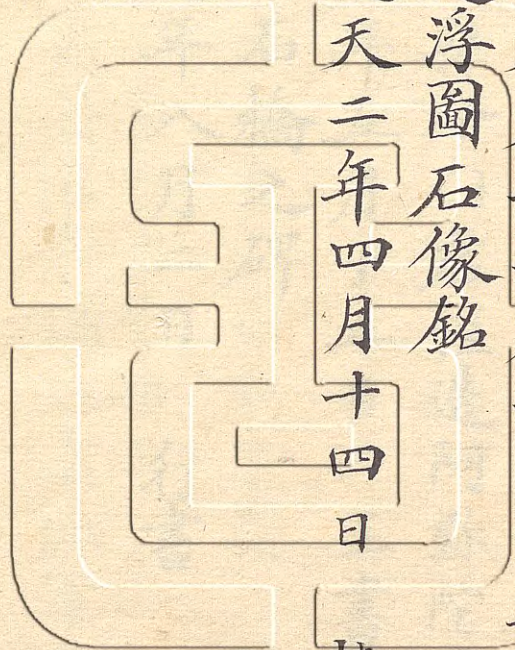 浮圖石像銘
天二年四月十四日